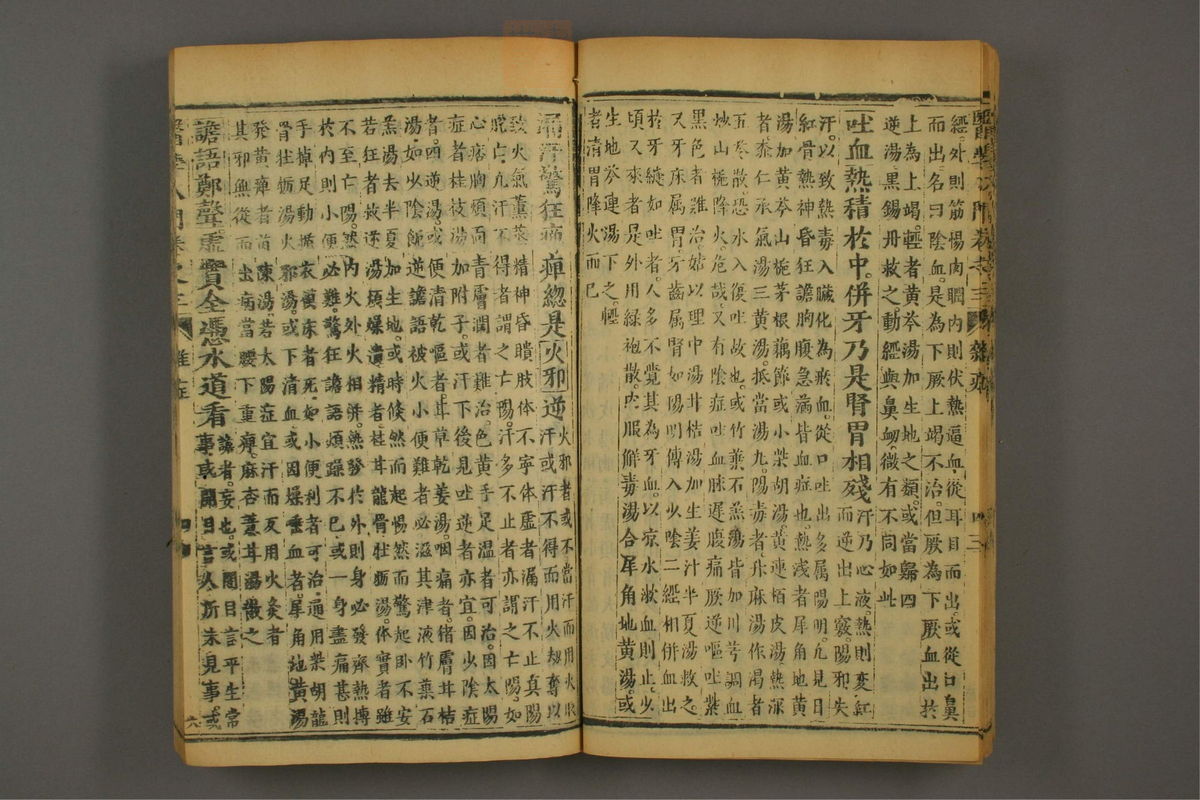 經外則筋惕肉瞤內則伏熱逼血從耳目而出。或從口鼻
而出名曰陰血。是為下厥上竭不治。但厥為下厥血出於
上為上竭。輕者黃芩湯加生地之類。或當歸四
逆湯黑錫丹救之動經與鼻衂微有不同如此
吐血熱積於中。併牙乃是腎胃相殘
汗乃心液。熱則變紅
而逆出上竅。陽邪失
汗。以致熱毒入臟化為瘀血。從口吐出多屬陽明。凡見日
紅骨熱神昏狂譫胸腹急滿皆血症也。熱淺者犀角地黃
湯加黃芩山梔茅根藕節或小柴胡湯黃連栢皮湯熱深
者桼仁承氣湯三黃湯。抵當湯丸。陽毒者升麻湯作渴者
五苓散。恐水入復吐故也。或竹葉石羔湯皆加川芎調血
炒山梔降火。危哉又有陰症吐血脉遲腹痛厥逆嘔吐紫
黑色者雖治。姑以理中湯甘桔湯加生姜汁半夏湯救之
又牙床屬胃。牙齒屬腎如陽明傳入少陰二經相併血出
於牙縫如吐者人多不覺其為牙血。以涼水漱血則止。少
頃又來者是外用綠袍散。內服解毒湯合犀角地黃湯。或
生地芩連湯下之。輕
者清胃降火而已
漏汗驚狂痛痺總是火邪逆
火邪者或不當汗而用火
汗或汗不得而用火刼奪以
致火氣薰蒸精神昏瞶肢体不寧体虛者漏汗不止真陽
脫亡。凡汗不得者謂之亡陽。汗多不止者亦謂之亡陽。如
心痞胸煩面青膚潤者難治。色黃手足溫者可治。因太陽
症者桂枝湯加附子。或汗下後見吐逆者亦宜。因少陰症
者。四逆湯。或便清乾嘔者甘草乾姜湯。咽痛者猪膚甘桔
湯。如少陰厥逆譫語被火小便難者必滋其津液竹葉石
羔湯去半夏加生地。或時倐然而起惕然而驚起卧不安
若狂者救逆湯煩燥遺精者桂甘龍骨牡蠣湯。体實者雖
不至亡陽。然內火外火相併。熱發於外則身必發齊熱搏
於內則小便必難。驚狂譫語煩躁不已或一身盡痛甚則
手掉足動循衣撮床者死。如小便利者可治。通用柴胡龍
骨牡蠣湯火邪湯。或下清血或因燥唾血者。犀角地黃湯
發黃瘅者茵陳湯。若太陽症宜汗而反用火灸者
其邪無從而出病當腰下重痺。麻杏薏甘湯微之
譫語鄭聲虛實全憑水道看
譫者。妄也。或開目言平生常
事。或開目言人所未見事。或